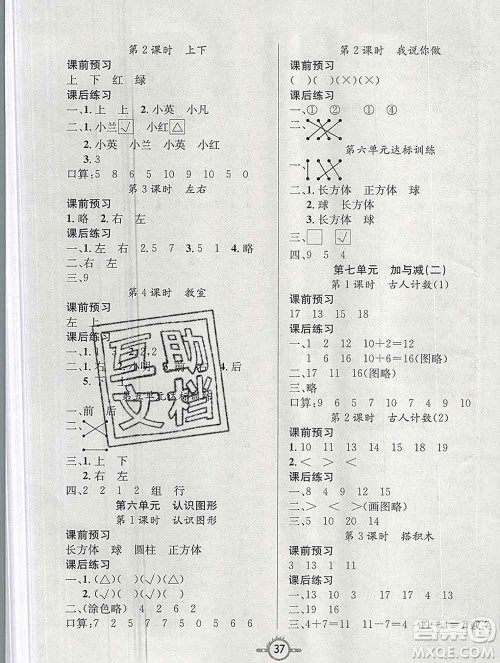 第2课时 上下
课前预习
上 下 红 绿
课后练习
一、1. 上 上 2. 小英 小凡
二、1. 小兰☑ 小红△
2. 小英 小凡 小英 小兰
3. 3
口算: 5 8 6 5 10 9 10 5 0
第3课时 左右
课前预习
1. 略 2. 右 左
课后练习
一、左 右 2. 5 7 5 1 2. 略
二、右 左 右 左
口算: 9
第4课时 教室
课前预习
左 上
课后练习
5. 下
第五单元达标训练
一、前 后
二、
三、1. 上 下
2. 右 左
四、2 2 1 2 组 行
第六单元 认识图形
第1课时 认识图形
课前预习
长方体 球 圆柱 正方体
课后练习
一、(△)( )(✓)( )(✓)(△)
二、(涂色略) 2 4 1 2
口算: 7 2 5 7 8 8 6 8 9
第2课时 我说你做
课前预习
( )( )(×)(×)
课后练习
一、① ① ② ④
二、
第六单元达标训练
一、
二、1. 长方体 正方体 球
2. 球 长方体
3. 长方体 球
三、□ ☑
四、9 5 4
第七单元 加与减(二)
第1课时 古人计数(1)
课前预习
17 13 15 18
课后练习
一、16 12 10+2=12(图略)
二、15 16 10+6=16(图略)
三、略
口算: 9 10 9 6 8 10 8 2 0
第2课时 古人计数(2)
课前预习
1. 10 11 13 16 17 18 20
2. > < >
课后练习
一、8 11 14 17 19
二、> < > > <(画图略)
第3课时 搭积木
课前预习
10 15 11 14
课后练习
一、13 3 13 10
二、4+7=11 7+4=11
37